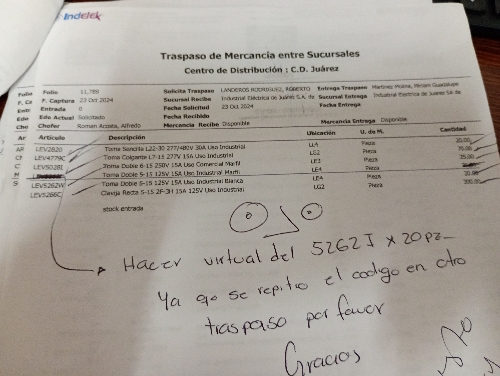 Indelek
Traspaso de Mercancia entre Sucursales
Centro de Distribución : C.D. Juárez
Folio 11,788 Solicita Traspaso LANDEROS RODRIGUEZ, ROBERTO Entrega Traspaso Martinez Molina, Miriam Guadalupe
F. Captura 23 Oct 2024 Sucursal Recibe Industrial Eléctrica de Juárez S.A. de Sucursal Entrega Industrial Electrica de Juárez SA de
Entrada 0 Fecha Solicitado 23 Oct 2024 Fecha Entrega
Edo Actual Solicitado Fecha Recibido
Chofer Roman Acosta, Alfredo Mercancia Recibe Disponible Mercancia Entrega Disponible
Artículo Descripción Ubicación U. de M. Cantidad
LEV2620 Toma Sencilla L22-30 277/480V 30A Uso Industrial LL4 Pieza 20.00
LEV4779C Toma Colgante L7-15 277V 15A Uso Industrial LG2 Pieza
LEV5028I Toma Doble 6-15 250V 15A Uso Comercial Marfil LE3 Pieza
Toma Doble 5-15 125V 15A Uso Industrial Marfil LE4 Pieza
LEV5262W Toma Doble 5-15 125V 15A Uso Industrial Blanca LE4 Pieza
LEV5266C Clavija Recta 5-15 2P-3H 15A 125V Uso Industrial LG2 Pieza 300.00
stock entrada
Hacer virtual del 5262I x 20pz
Ya qe se repitio el codigo en otro
traspaso por favor
Gracias